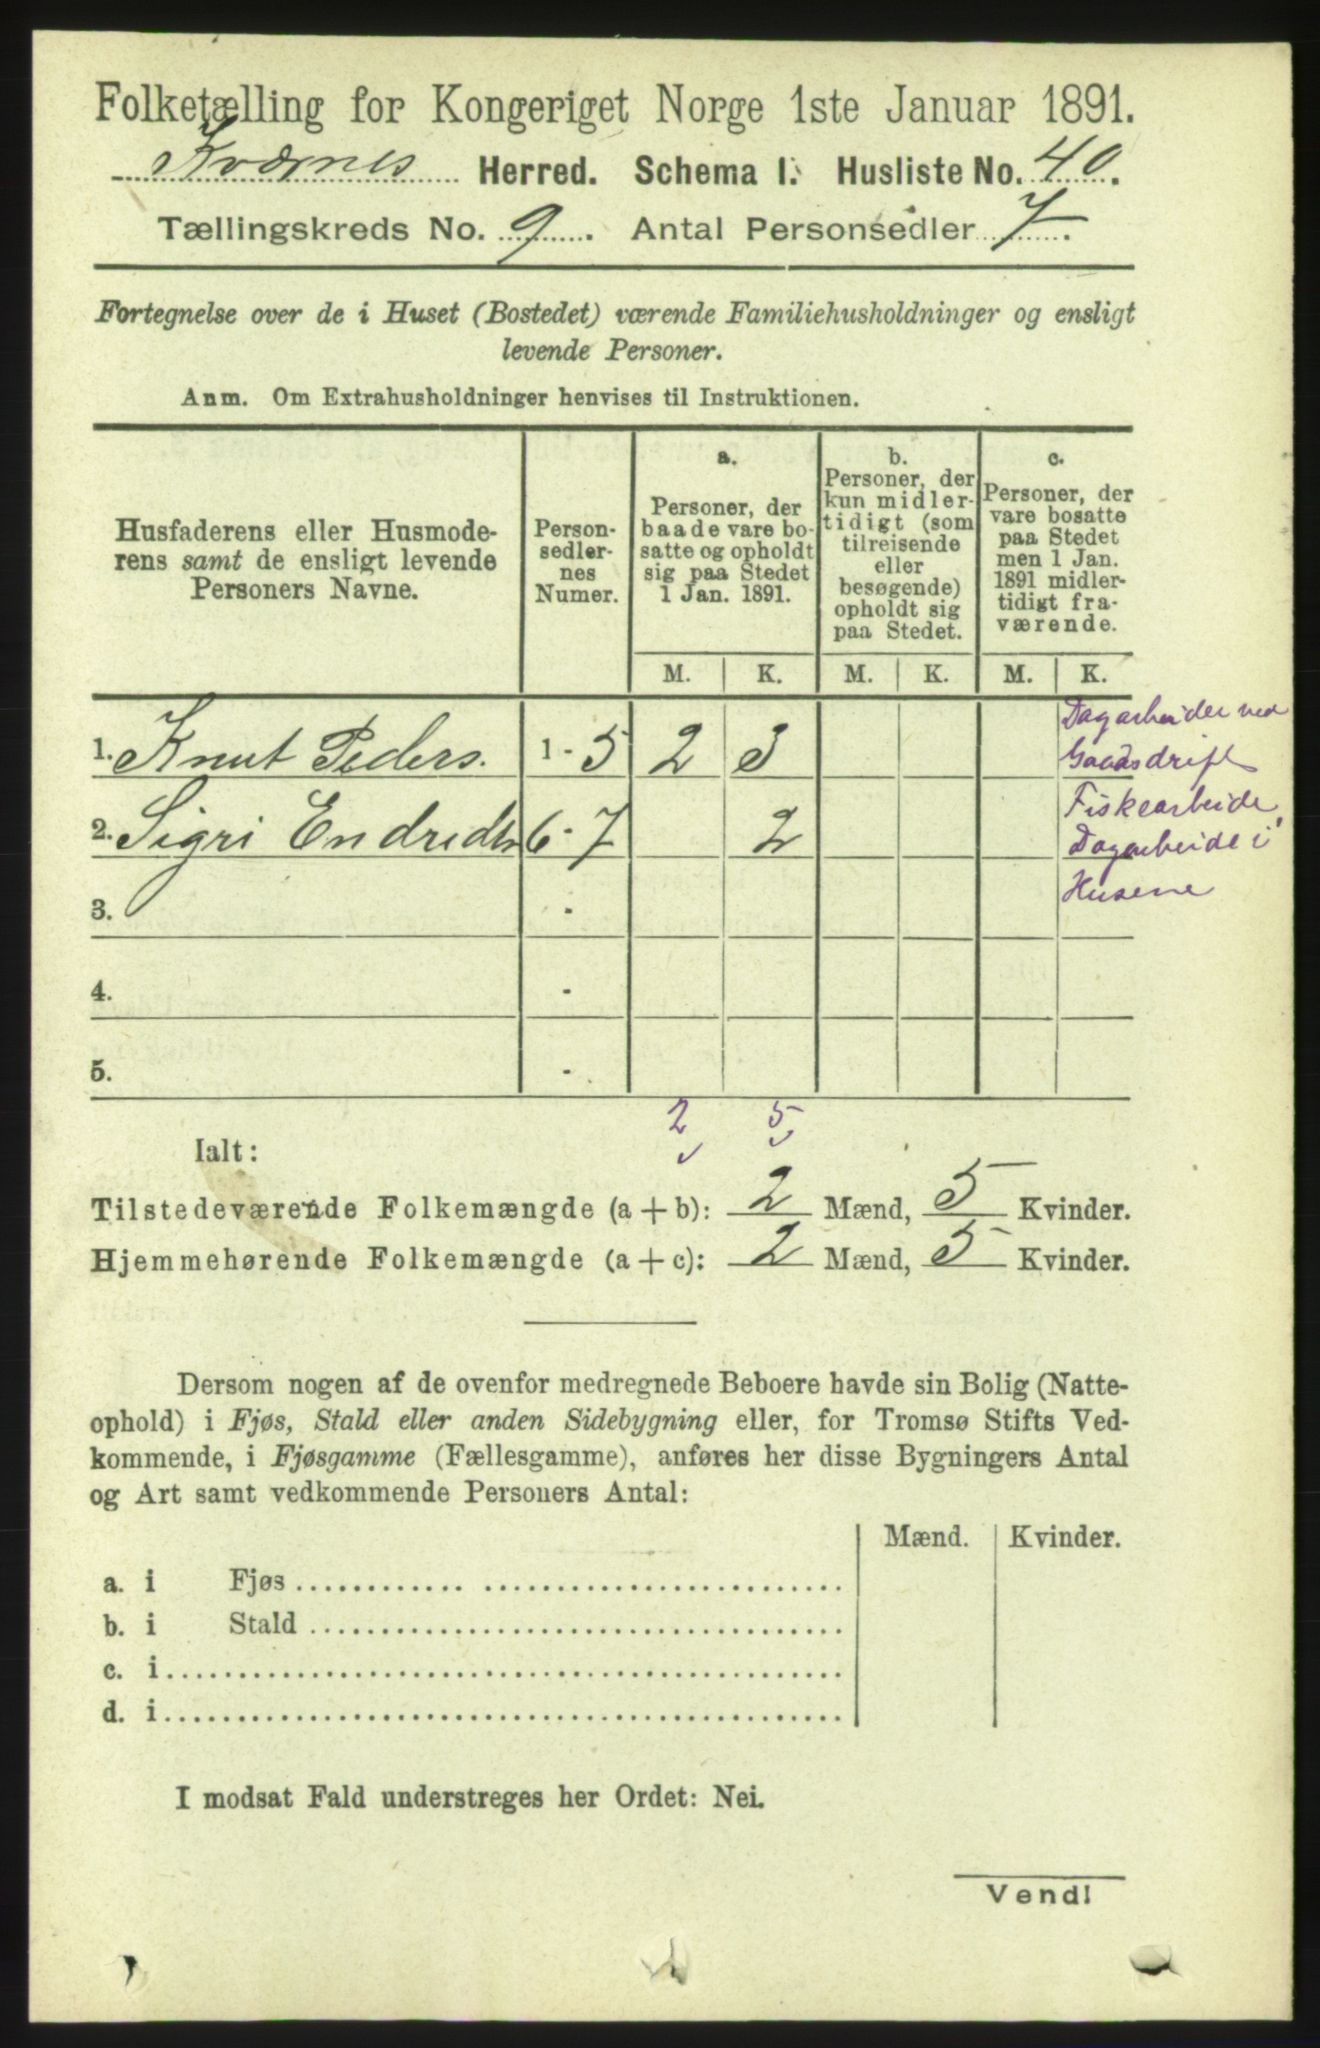 Folketælling for Kongeriget Norge 1ste Januar 1891.
Kværnes Herred. Schema I. Husliste No. 40.
Tællingskreds No. 9. Antal Personsedler 7.
Fortegnelse over de i Huset (Bostedet) værende Familiehusholdninger og ensligt
levende Personer.
Anm. Om Extrahusholdninger henvises til Instruktionen.
Husfaderens eller Husmode-
rens samt de ensligt levende
Personers Navne.
Person-
sedler-
nes
Numer.
a.
Personer, der
baade vare bo-
satte og opholdt
sig paa Stedet
1 Jan. 1891.
b.
Personer, der
kun midler-
tidigt (som
tilreisende
eller
besøgende)
opholdt sig
paa Stedet.
c.
Personer, der
vare bosatte
paa Stedet
men 1 Jan.
1891 midler-
tidigt fra-
værende.
M. K. M. K. M. K.
1. Knut Peders. 1 - 5 2 3
Dagarbeider ved
Gaardsdrift
2. Sigri Endredtr 6 - 7 2
Fiskearbeide,
Dagarbeide i
Husene
3. -
4. -
5. -
2 5
Ialt:
Tilstedeværende Folkemængde (a + b): 2 Mænd, 5 Kvinder.
Hjemmehørende Folkemængde (a + c): 2 Mænd, 5 Kvinder.
Dersom nogen af de ovenfor medregnede Beboere havde sin Bolig (Natte-
ophold) i Fjøs, Stald eller anden Sidebygning eller, for Tromsø Stifts Ved-
kommende, i Fjøsgamme (Fællesgamme), anføres her disse Bygningers Antal
og Art samt vedkommende Personers Antal:
Mænd. Kvinder.
a. i Fjøs
b. i Stald
c. i
d. i
I modsat Fald understreges her Ordet: Nei.
Vend!